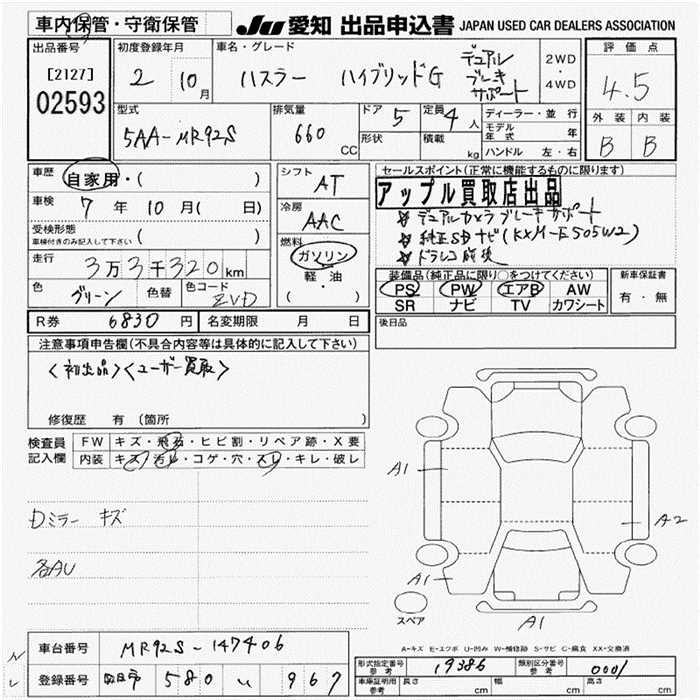 車内保管・守衛保管
JU 愛知 出品申込書 JAPAN USED CAR DEALERS ASSOCIATION
出品番号
[2127]
02593
初度登録年月
2 10月
車名・グレード
ハスラー ハイブリッドG デュアル ブレーキ サポート
2WD
・
4WD
評価点
4.5
外装 内装
B B
型式
5AA-MR92S
排気量
660 CC
ドア 5
定員 4人
形状
積載 kg
ディーラー・並行
モデル年式 年
ハンドル 左・右
車歴 自家用・( )
車検 7年10月( 日)
受検形態
車検付きのみ記入して下さい ( )
走行 3万3千320km
色 グリーン
色替
色コード ZVD
シフト AT
冷房 AAC
燃料
ガソリン
軽・油
( ・ )
セールスポイント(正常に機能するものに限ります)
アップル買取店出品
☆ デュアルカメラブレーキサポート
☆ 純正SDナビ(KXM-E505W2)
☆ ドラレコ前後
装備品(純正品に限り○をつけてください)
PS PW エアB AW
SR ナビ TV カワシート
新車保証書
有・無
R券 6830円
名変期限 月 日
後日品
注意事項申告欄(不具合内容等は具体的に記入して下さい)
<初出品><ユーザー買取>
修復歴 有(箇所 )
検査員記入欄
FW キズ・飛石・ヒビ割・リペア跡・X要
内装 キズ・汚レ・コゲ・穴・スレ・キレ・破レ
Dミラー キズ
各AU
A1
A2
A1
A1
スペア
A-キズ E-エクボ U-凹み W-補修跡 S-サビ C-腐食 XX-交換済
車台番号 MR92S-147406
登録番号 四日市 580 い 967
形式指定番号 参考 19386
類別区分番号 参考 0001
車庫証明用 参考 長さ cm 幅 cm 高さ cm